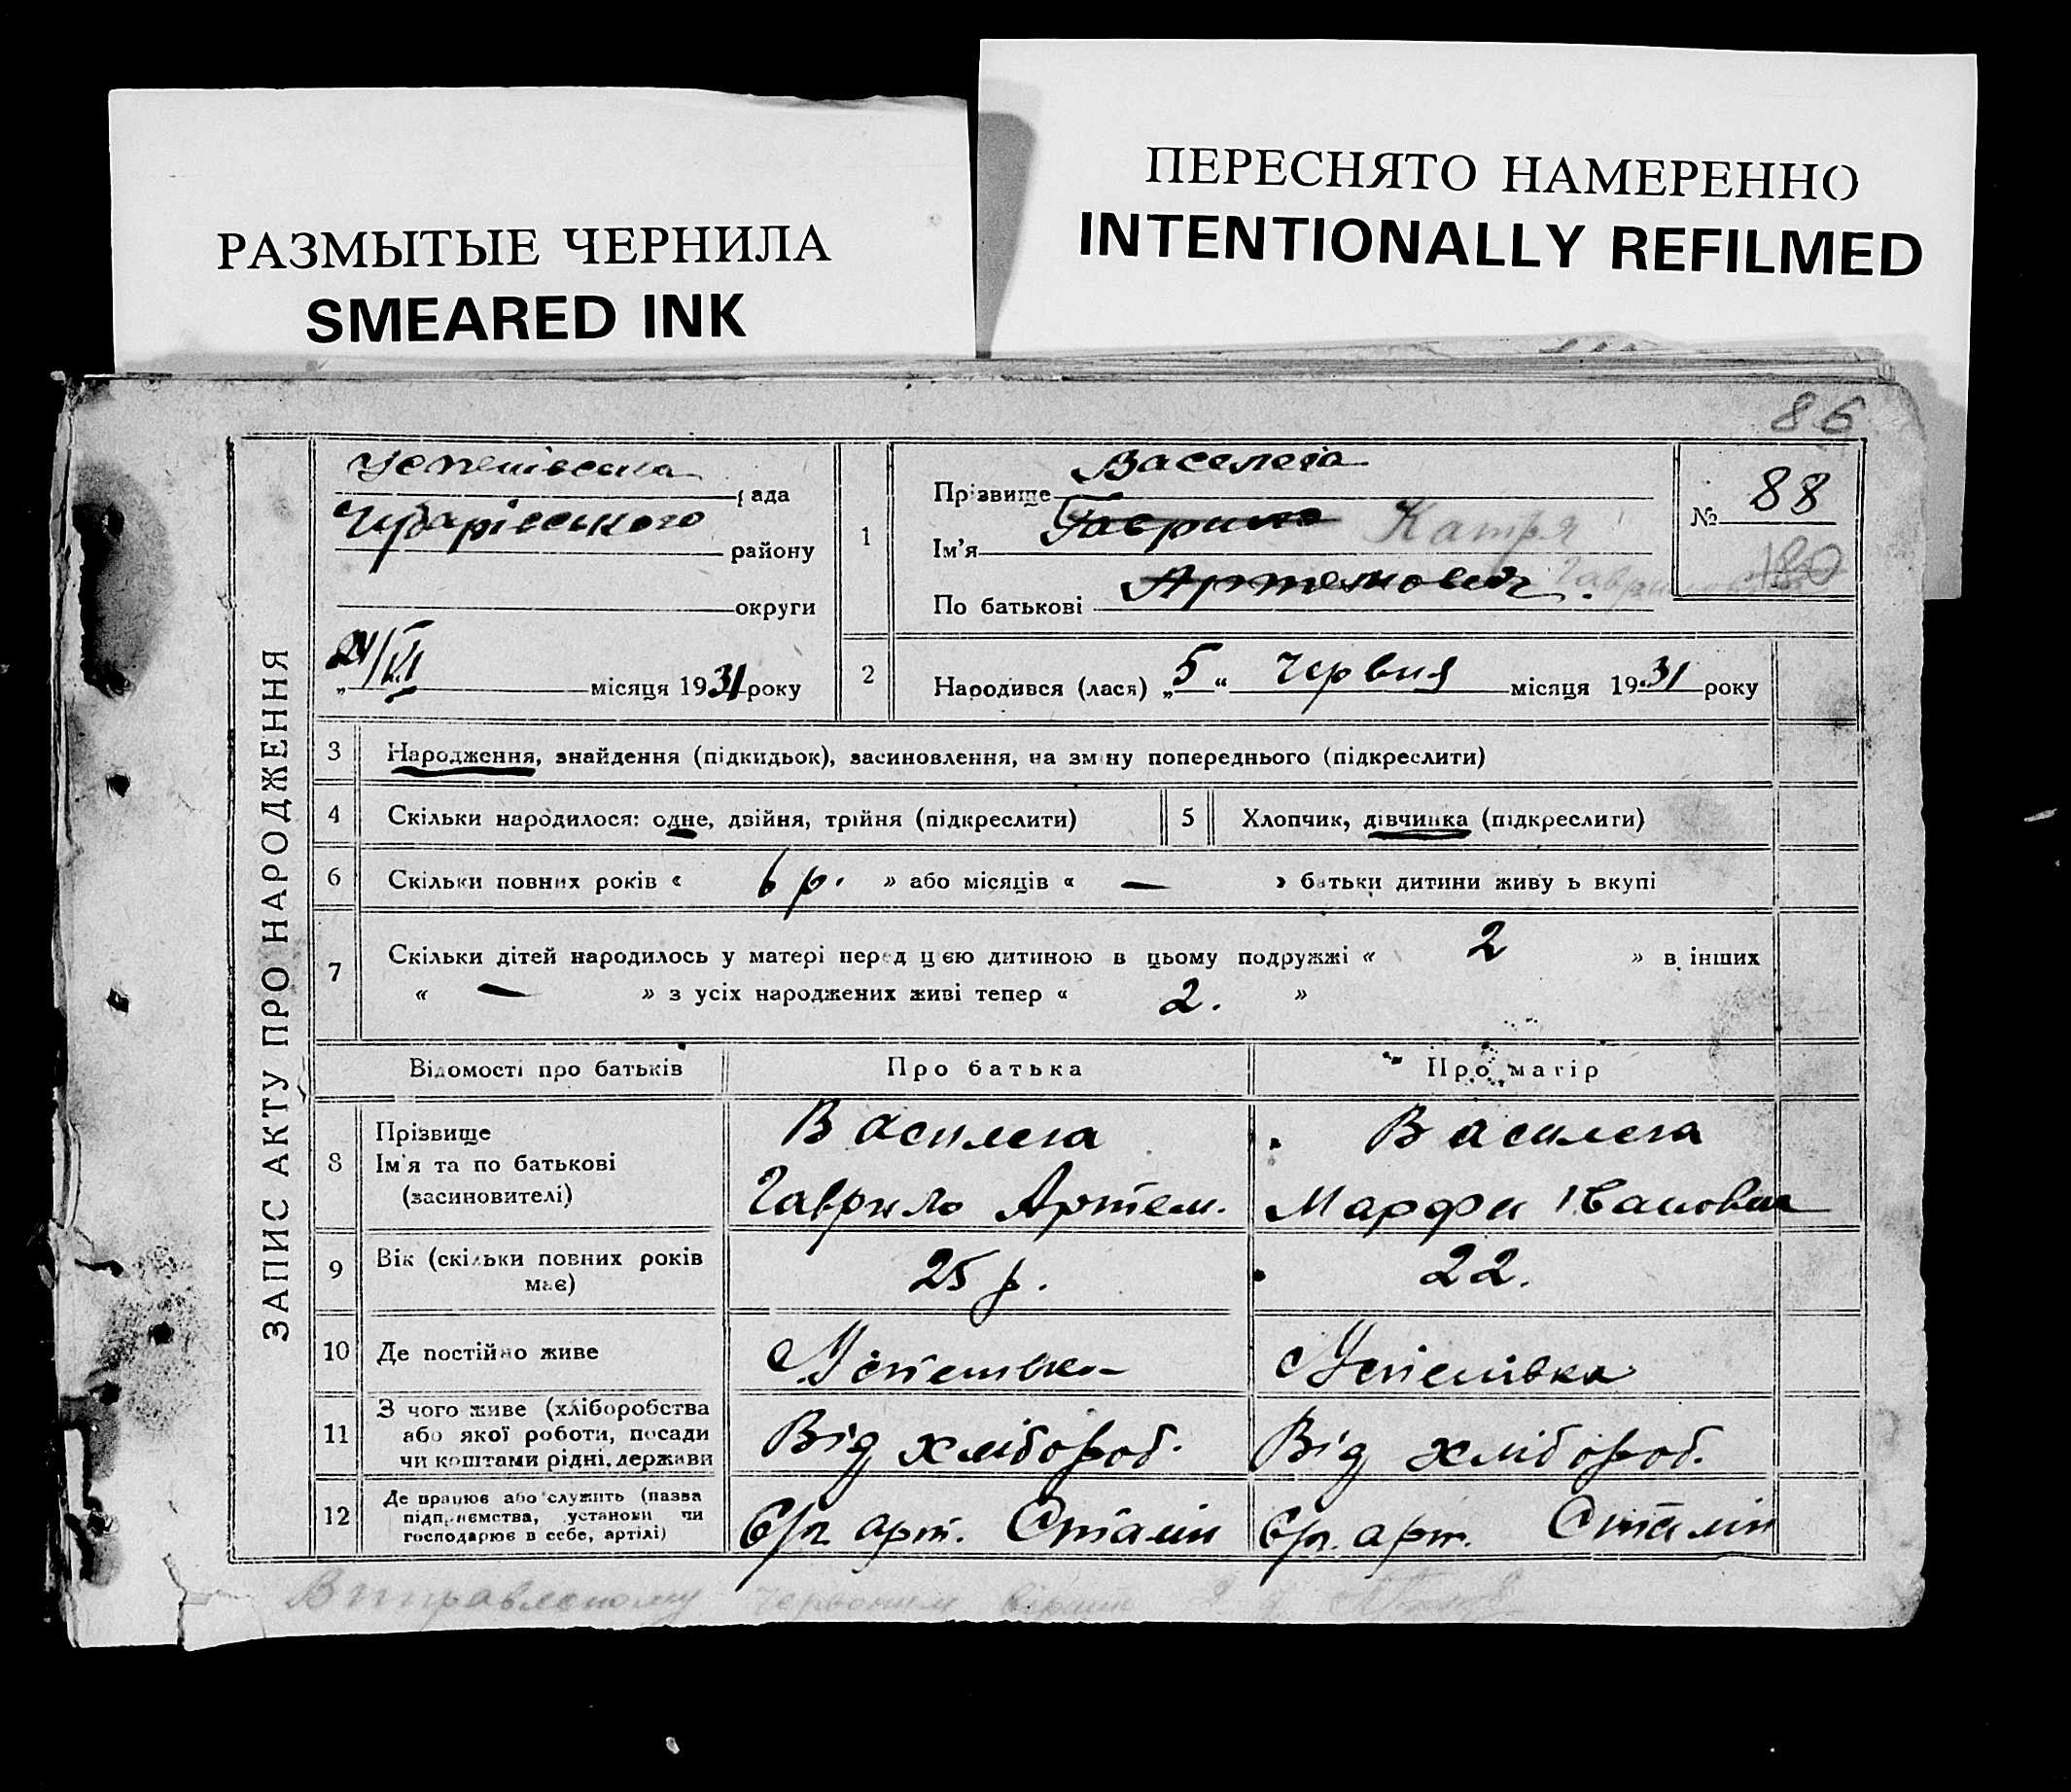 РАЗМЫТЫЕ ЧЕРНИЛА
SMEARED INK
ПЕРЕСНЯТО НАМЕРЕННО
INTENTIONALLY REFILMED
86
ЗАПИС АКТУ ПРО НАРОДЖЕННЯ
Успенівська рада
Чубарівського району
округи
„21/VI місяця 1931 року
1
Прізвище Васелега
Ім'я Гаврило Катря
По батькові Артемович. Гаврилов
№ 88
180
2
Народився (лася) „5“ Червня місяця 1931 року
3 Народження, знайдення (підкидьок), засиновлення, на зміну попереднього (підкреслити)
4 Скільки народилося: одне, двійня, трійня (підкреслити)
5 Хлопчик, дівчинка (підкреслити)
6 Скільки повних років « 6 р. » або місяців « — » батьки дитини живуть вкупі
7 Скільки дітей народилось у матері перед цією дитиною в цьому подружжі « 2 » в інших
« — » з усіх народжених живі тепер « 2. »
Відомості про батьків Про батька Про матір
8 Прізвище
Ім'я та по батькові
(засиновителі)
Василега
Гаврило Артем.
Василега
Марфа Івановна
9 Вік (скільки повних років
має)
25 р.
22.
10 Де постійно живе
Успенівка
Успенівка
11 З чого живе (хліборобства
або якої роботи, посади
чи коштами рідні, держави
Від хлібороб.
Від хлібороб.
12 Де працює або служить (назва
підприємства, установи чи
господарює в себе, артілі)
с/г арт. Сталін
с/г. арт. Сталін
Виправленому червоним вірить